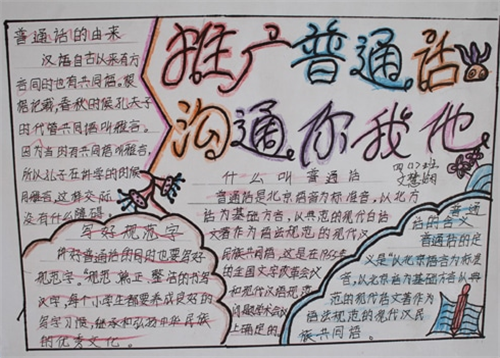 推广普通话
沟通你我他
四(1)班
普通话的由来
汉语自古以来有方
言同时也有共同语。根
据记载,春秋时候,孔夫子
时代管共同语叫雅言。
因为当时有共同语叫雅言,
所以孔子在讲学的时候
用雅言,这样交际
没有什么障碍。
写好规范字
许好普通话的同时也要写好
规范字。"规范、端正、整洁的书写
汉字,每个小学生都要养成良好的
写字习惯,继承和弘扬中华民族
的优秀文化。
什么叫普通话
普通话是北京语音为标准音,以北方
话为基础方言,以典范的现代白话
文著作为语法规范的现代汉
民族共同语,这是在1955年
的全国文字改革会议
和现代汉语规范
问题学术会议
上确定的。
普通
话的含义
普通话的定
义是"以北京语音为标准
音,以北方话为基础方言以典
范的现代白话文著作为
语法规范的现代汉民
族共同语。